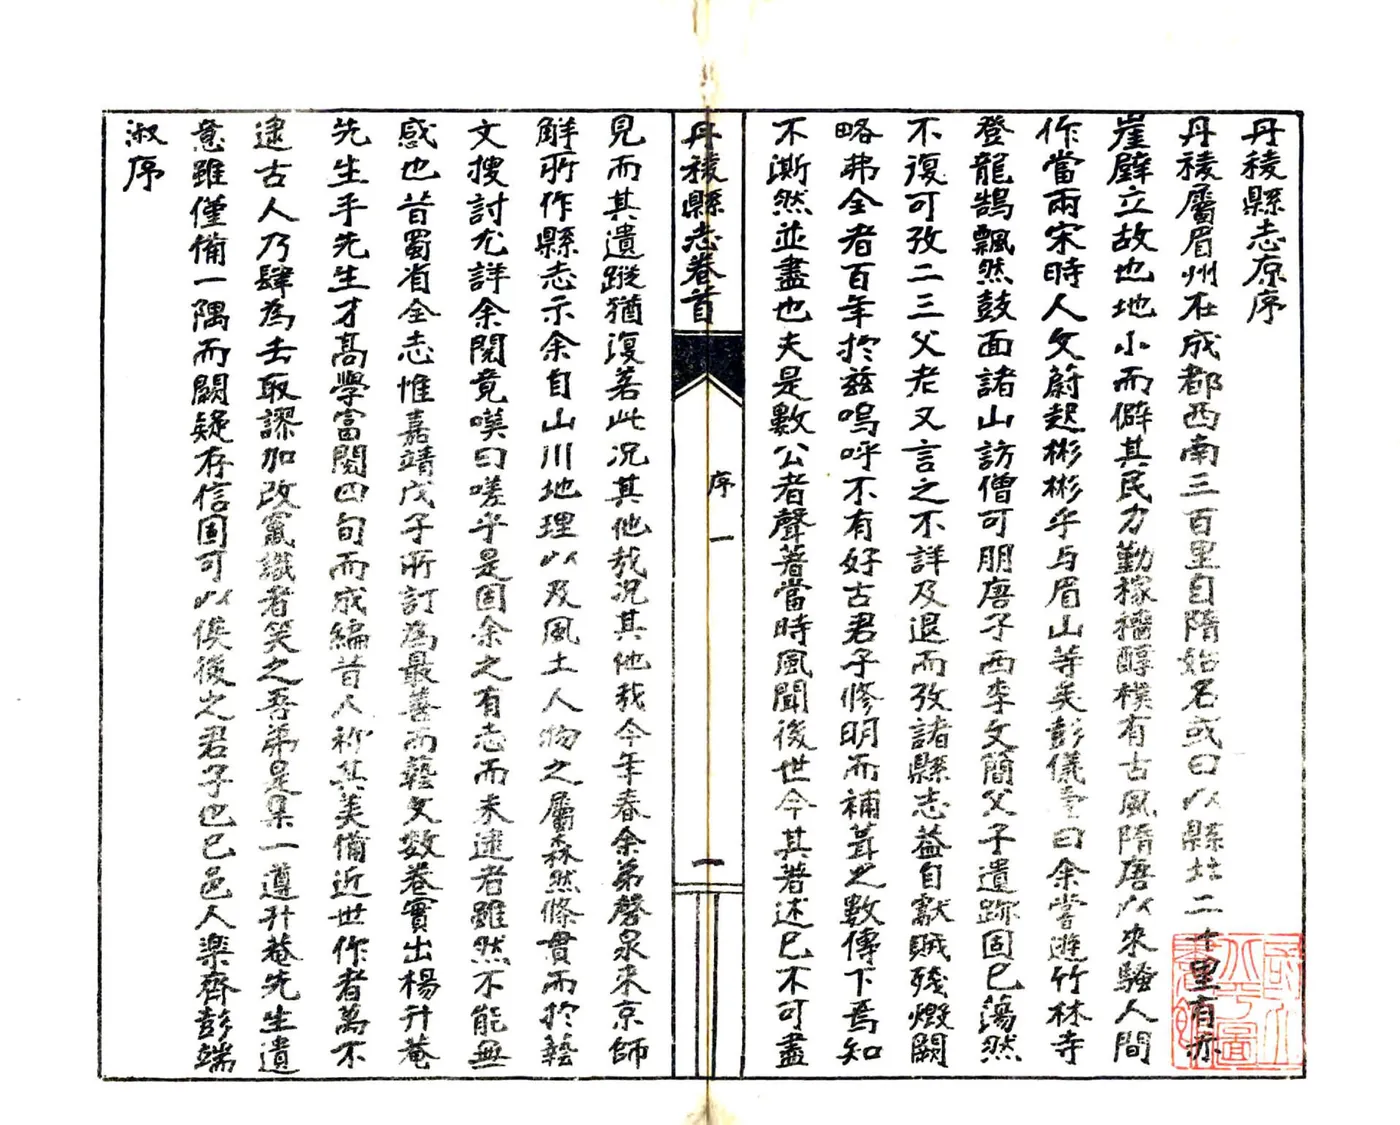 丹稜縣志原序
丹稜屬眉州在成都西南三百里自隋始名或曰以縣北二十里有赤
崖壁立故也地小而僻其民力勤稼穡醇樸有古風隋唐以來騷人間
作當兩宋時人文蔚起彬彬乎与眉山等矣彭儀壹曰余嘗遊竹林寺
登龍鵠飄然鼓面諸山訪僧可朋唐子西李文簡父子遺跡固已蕩然
不復可攷二三父老又言之不詳及退而攷諸縣志益自獻賊殘燬闕
略弗全者百年於茲嗚呼不有好古君子修明而補葺之數傳下焉知
不澌然並盡也夫是數公者聲著當時風聞後世今其著述已不可盡
丹稜縣志卷首
序一
一
見而其遺蹤猶復若此况其他哉况其他哉今年春余弟磬泉來京師
觧所作縣志示余自山川地理以及風土人物之屬森然條貫而於藝
文搜討尤詳余閱竟嘆曰嗟乎是固余之有志而未逮者雖然不能無
感也昔蜀省全志惟嘉靖戊子所訂為最善而藝文数卷實出楊升菴
先生手先生才高學富閱四旬而成編昔人称其美備近世作者萬不
逮古人乃肆為去取謬加改竄識者笑之吾弟是集一遵升菴先生遺
意雖僅備一隅而闕疑存信固可以俟後之君子也已邑人樂齊彭端
淑序